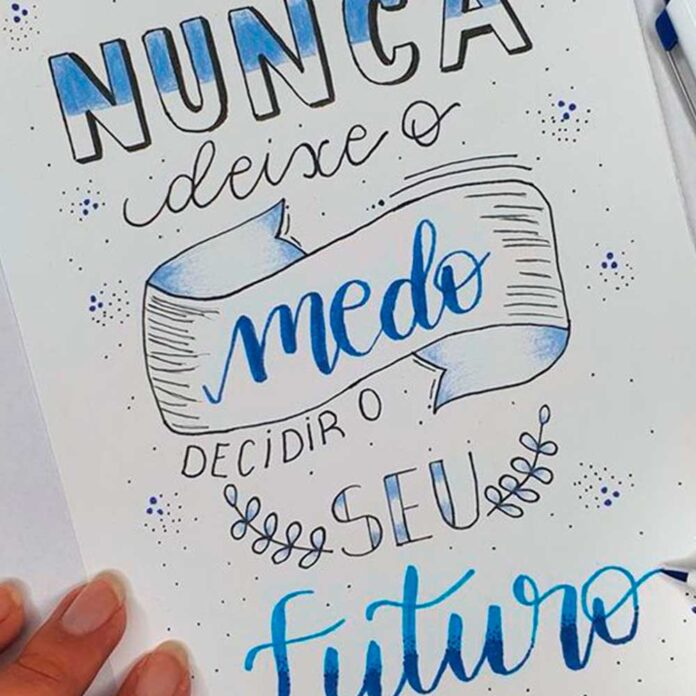 NUNCA
deixe o
medo
DECIDIR O
SEU
futuro